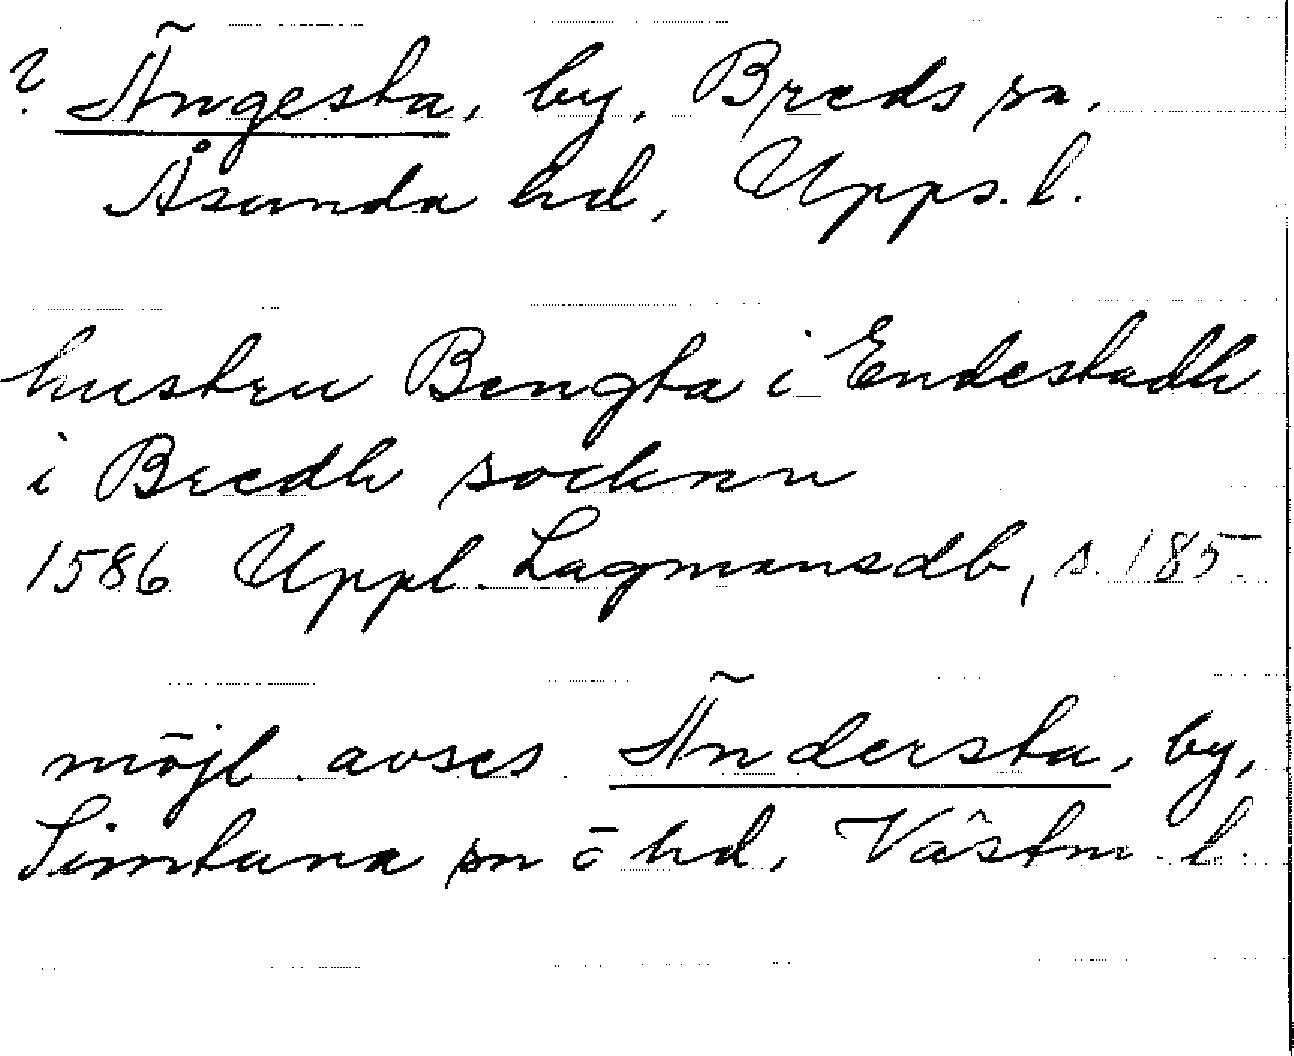 ? Ängesta, by, Breds sn,
Åsunda hd, Upps. l.
hustru Bengta i Endestadh
i Bredh socknn
1586 Uppl. Lagmansdb, s. 185
möjl. avsesÄndersta, by,
Simtuna sn ö hd, Västm. l.